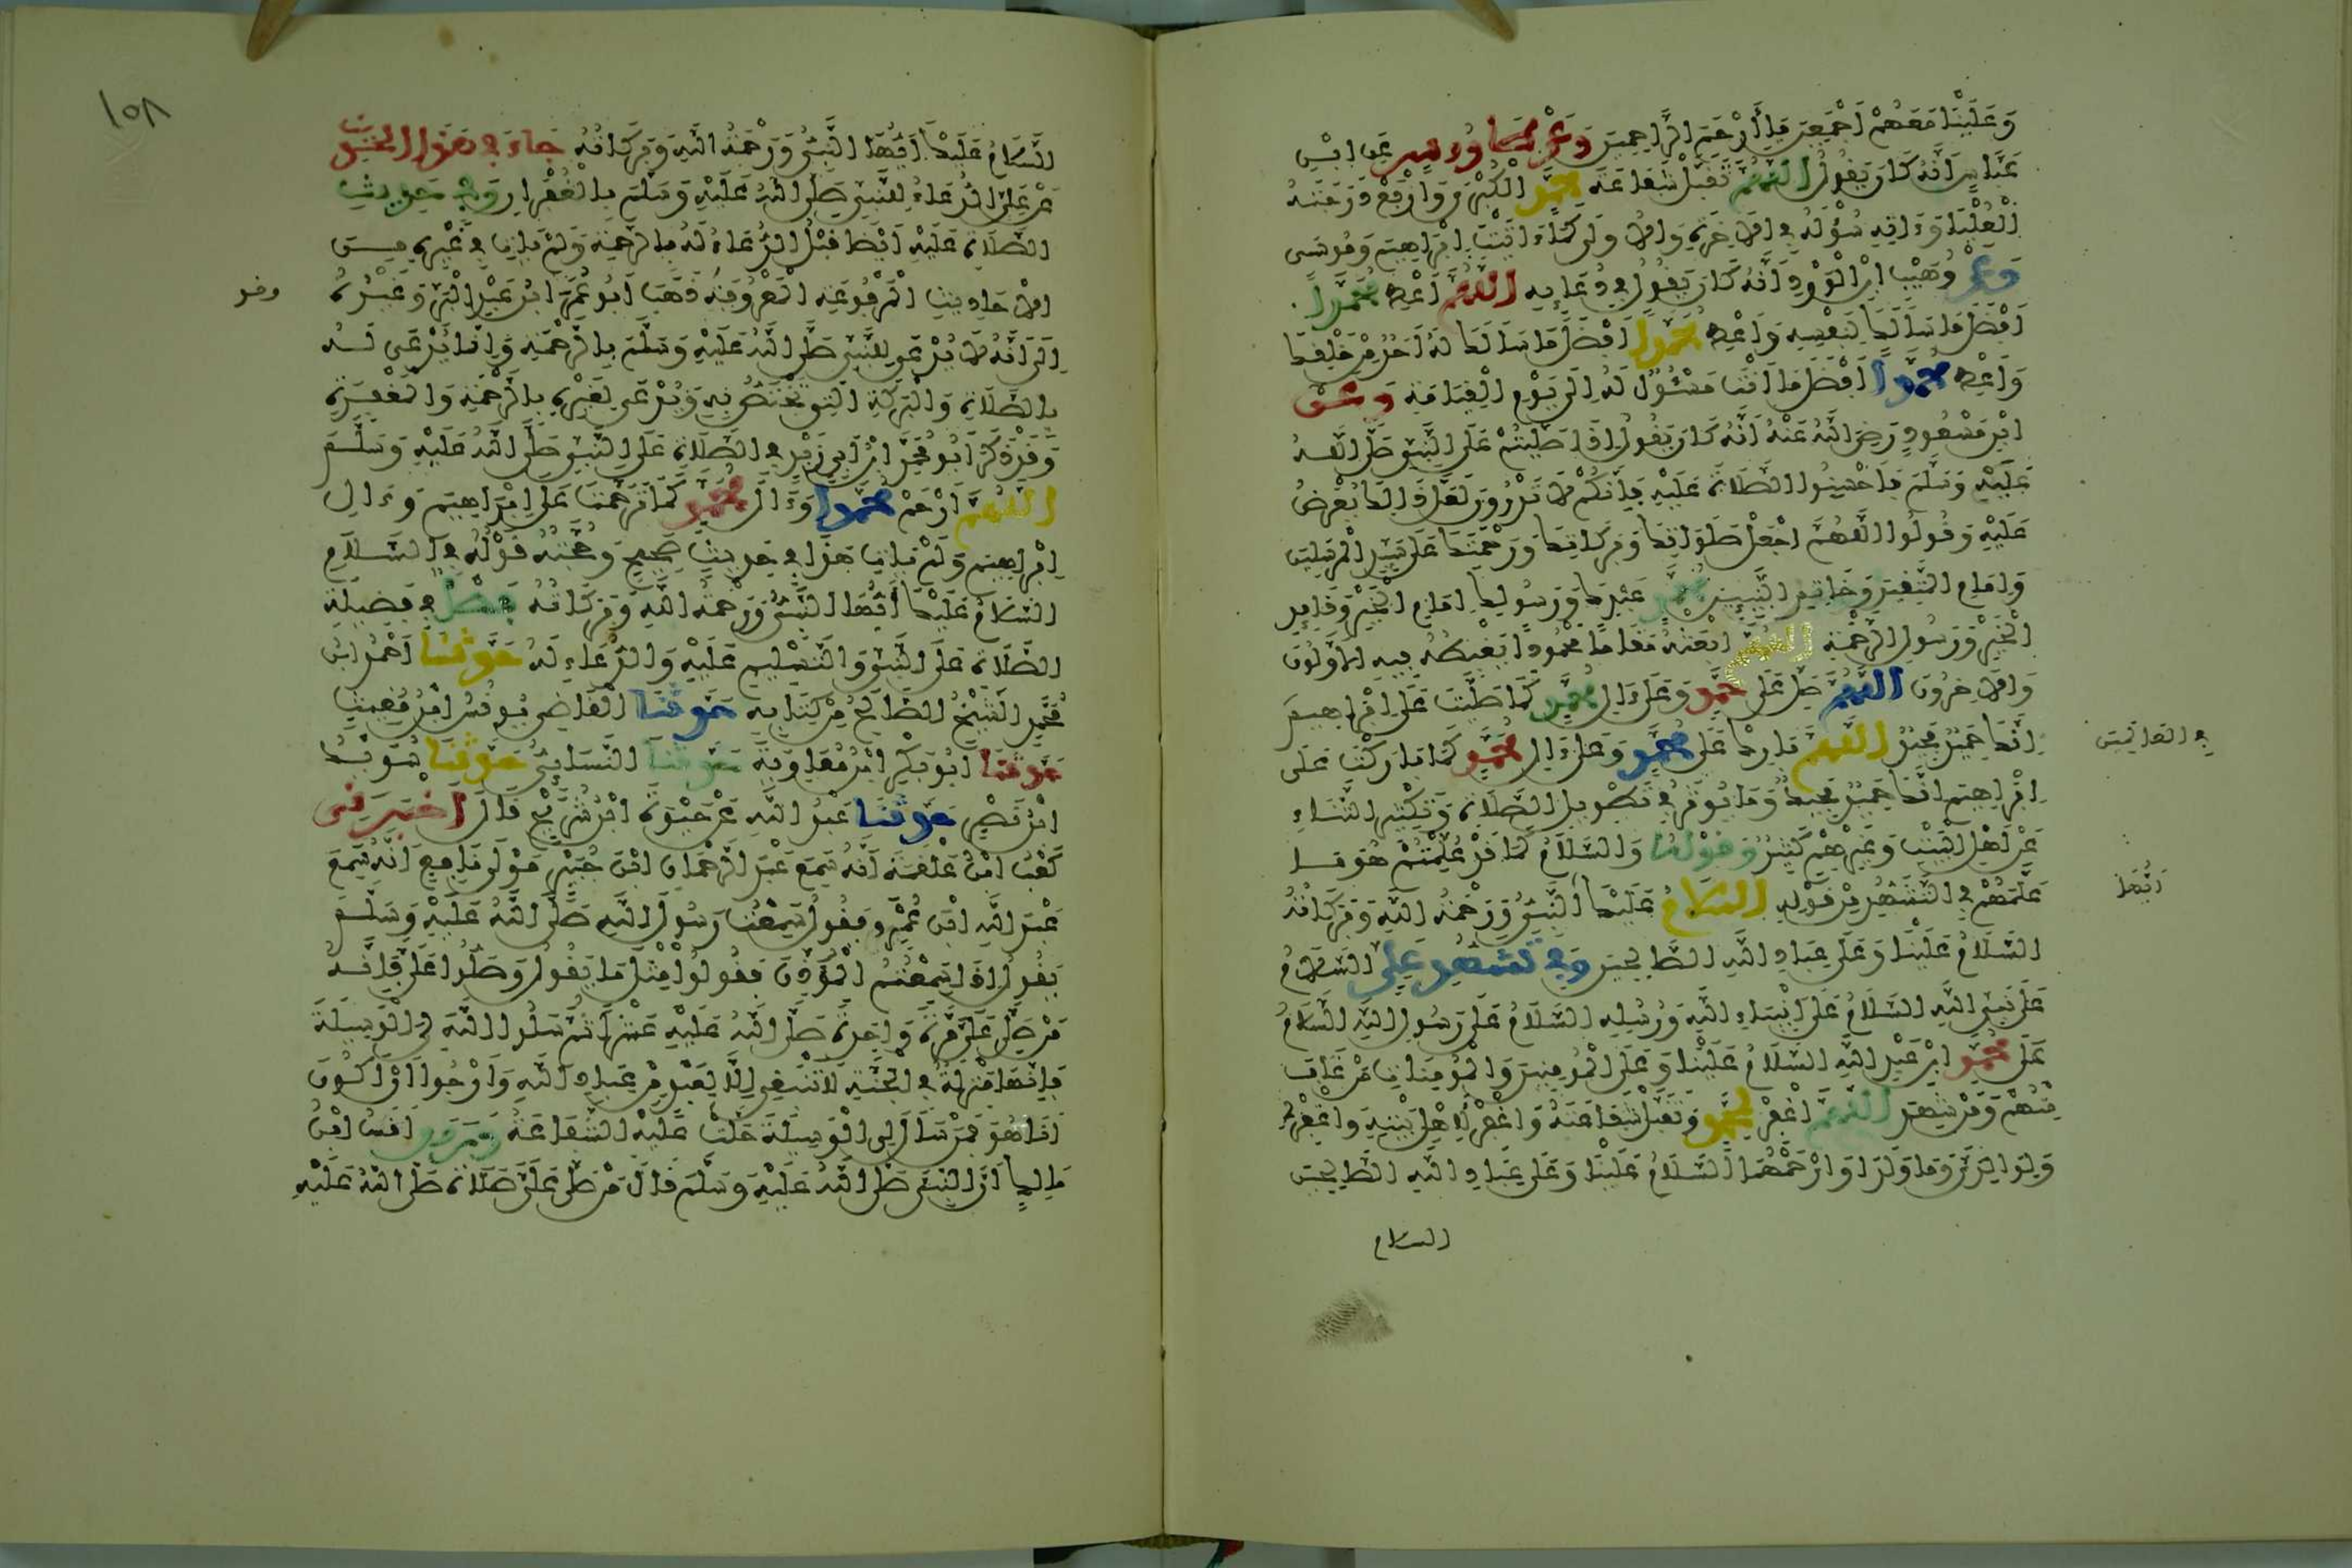 وَعَلَيْنَا مَعَهُمْ أَجْمَعِينَ يَا أَرْحَمَ الرَّاحِمِينَ وَعَنْ طَاوُوسٍ عَنِ ابْنِ
عَبَّاسٍ أَنَّهُ كَانَ يَقُولُ اللَّهُمَّ تَقَبَّلْ شَفَاعَةَ مُحَمَّدٍ الْكُبْرَى وَارْفَعْ دَرَجَتَهُ
الْعُلْيَا وَءَاتِهِ سُؤْلَهُ فِي الْآخِرَةِ وَالْأُولَى كَمَا ءَاتَيْتَ إِبْرَاهِيمَ وَمُوسَى
وَعَنْ وُهَيْبِ ابْنِ الْوَرْدِ أَنَّهُ كَانَ يَقُولُ فِي دُعَائِهِ اللَّهُمَّ أَعْطِ مُحَمَّدًا
أَفْضَلَ مَا سَأَلَكَ لِنَفْسِهِ وَأَعْطِ مُحَمَّدًا أَفْضَلَ مَا سَأَلَكَ لَهُ أَحَدٌ مِنْ خَلْقِكَ
وَأَعْطِ مُحَمَّدًا أَفْضَلَ مَا أَنْتَ مَسْئُولٌ لَهُ إِلَى يَوْمِ الْقِيَامَةِ وَعَنِ
ابْنِ مَسْعُودٍ رَضِيَ اللَّهُ عَنْهُ أَنَّهُ كَانَ يَقُولُ إِذَا صَلَّيْتُمْ عَلَى النَّبِيِّ صَلَّى اللَّهُ
عَلَيْهِ وَسَلَّمَ فَأَحْسِنُوا الصَّلَاةَ عَلَيْهِ فَإِنَّكُمْ لَا تَدْرُونَ لَعَلَّ ذَلِكَ يُعْرَضُ
عَلَيْهِ وَقُولُوا اللَّهُمَّ اجْعَلْ صَلَوَاتِكَ وَبَرَكَاتِكَ وَرَحْمَتَكَ عَلَى سَيِّدِ الْمُرْسَلِينَ
وَإِمَامِ الْمُتَّقِينَ وَخَاتِمِ النَّبِيئِينَ مُحَمَّدٍ عَبْدِكَ وَرَسُولِكَ إِمَامِ الْخَيْرِ وَقَائِدِ
الْخَيْرِ وَرَسُولِ الرَّحْمَةِ اللَّهُمَّ ابْعَثْهُ مَقَامًا مَحْمُودًا يَغْبِطُهُ فِيهِ الْأَوَّلُونَ
وَالْآخِرُونَ اللَّهُمَّ صَلِّ عَلَى مُحَمَّدٍ وَعَلَى ءَالِ مُحَمَّدٍ كَمَا صَلَّيْتَ عَلَى إِبْرَاهِيمَ
إِنَّكَ حَمِيدٌ مَجِيدٌ اللَّهُمَّ بَارِكْ عَلَى مُحَمَّدٍ وَعَلَى ءَالِ مُحَمَّدٍ كَمَا بَارَكْتَ عَلَى
إِبْرَاهِيمَ إِنَّكَ حَمِيدٌ مَجِيدٌ وَمَا يُوثَرُ فِي تَطْوِيلِ الصَّلَاةِ وَتَكْثِيرِ الثَّنَاءِ
عَنْ أَهْلِ الْبَيْتِ وَغَيْرِهِمْ كَثِيرٌ وَقَوْلُهُ وَالسَّلَامُ كَمَا قَدْ عُلِّمْتُمْ هُوَ مَا
عَلَّمَهُمْ فِي التَّشَهُّدِ مِنْ قَوْلِهِ السَّلَامُ عَلَيْكَ أَيُّهَا النَّبِيُّ وَرَحْمَةُ اللَّهِ وَبَرَكَاتُهُ
السَّلَامُ عَلَيْنَا وَعَلَى عِبَادِ اللَّهِ الصَّالِحِينَ وَفِي تَشَهُّدِ عَلِيٍّ السَّلَامُ
عَلَى نَبِيِّ اللَّهِ السَّلَامُ عَلَى أَنْبِيَاءِ اللَّهِ وَرُسُلِهِ السَّلَامُ عَلَى رَسُولِ اللَّهِ السَّلَامُ
عَلَى مُحَمَّدِ ابْنِ عَبْدِ اللَّهِ السَّلَامُ عَلَيْنَا وَعَلَى الْمُؤْمِنِينَ وَالْمُؤْمِنَاتِ مَنْ غَابَ
مِنْهُمْ وَمَنْ شَهِدَ اللَّهُمَّ اغْفِرْ لِمُحَمَّدٍ وَتَقَبَّلْ شَفَاعَتَهُ وَاغْفِرْ لِأَهْلِ بَيْتِهِ وَاغْفِرْ لِي
وَلِوَالِدَيَّ وَمَا وَلَدَا وَارْحَمْهُمَا السَّلَامُ عَلَيْنَا وَعَلَى عِبَادِ اللَّهِ الصَّالِحِينَ
السلام
في العالمين
أيضا
١٥٨
السَّلَامُ عَلَيْكَ أَيُّهَا النَّبِيُّ وَرَحْمَةُ اللَّهِ وَبَرَكَاتُهُ جَاءَ فِي هَذَا الْحَدِيثِ
عَنْ عَلِيٍّ الدُّعَاءُ لِلنَّبِيِّ صَلَّى اللَّهُ عَلَيْهِ وَسَلَّمَ بِالْغُفْرَانِ وَفِي حَدِيثِ
الصَّلَاةِ عَلَيْهِ أَيْضًا قَبْلُ الدُّعَاءُ لَهُ بِالرَّحْمَةِ وَلَمْ يَأْتِ فِي غَيْرِهِ مِنَ
الْأَحَادِيثِ الْمَرْفُوعَةِ الْمَعْرُوفَةِ ذَهَبَ أَبُو عُمَرَ ابْنُ عَبْدِ الْبَرِّ وَغَيْرُهُ
إِلَى أَنَّهُ لَا يُدْعَى لِلنَّبِيِّ صَلَّى اللَّهُ عَلَيْهِ وَسَلَّمَ بِالرَّحْمَةِ وَإِنَّمَا يُدْعَى لَهُ
بِالصَّلَاةِ وَالْبَرَكَةِ الَّتِي تَخْتَصُّ بِهِ وَيُدْعَى لِغَيْرِهِ بِالرَّحْمَةِ وَالْمَغْفِرَةِ
وَقَدْ ذَكَرَ أَبُو مُحَمَّدٍ ابْنُ أَبِي زَيْدٍ فِي الصَّلَاةِ عَلَى النَّبِيِّ صَلَّى اللَّهُ عَلَيْهِ وَسَلَّمَ
اللَّهُمَّ ارْحَمْ مُحَمَّدًا وَءَالَ مُحَمَّدٍ كَمَا تَرَحَّمْتَ عَلَى إِبْرَاهِيمَ وَءَالِ
إِبْرَاهِيمَ وَلَمْ يَأْتِ هَذَا فِي حَدِيثٍ صَحِيحٍ وَحُجَّتُهُ قَوْلُهُ فِي السَّلَامِ
السَّلَامُ عَلَيْكَ أَيُّهَا النَّبِيُّ وَرَحْمَةُ اللَّهِ وَبَرَكَاتُهُ فَصْلٌ فِي فَضِيلَةِ
الصَّلَاةِ عَلَى النَّبِيِّ وَالتَّسْلِيمِ عَلَيْهِ وَالدُّعَاءِ لَهُ حَدَّثَنَا أَحْمَدُ ابْنُ
مُحَمَّدٍ الشَّيْخُ الصَّالِحُ مِنْ كِتَابِهِ حَدَّثَنَا الْقَاضِي يُونُسُ ابْنُ مُغِيثٍ
حَدَّثَنَا أَبُو بَكْرِ ابْنُ مُعَاوِيَةَ حَدَّثَنَا النَّسَائِيُّ حَدَّثَنَا سُوَيْدُ
ابْنُ نَصْرٍ حَدَّثَنَا عَبْدُ اللَّهِ عَنْ حَيْوَةَ ابْنِ شُرَيْحٍ قَالَ أَخْبَرَنِي
كَعْبُ ابْنُ عَلْقَمَةَ أَنَّهُ سَمِعَ عَبْدَ الرَّحْمَانِ ابْنَ جُبَيْرٍ مَوْلَى نَافِعٍ أَنَّهُ سَمِعَ
عَبْدَ اللَّهِ ابْنَ عَمْرٍو يَقُولُ سَمِعْتُ رَسُولَ اللَّهِ صَلَّى اللَّهُ عَلَيْهِ وَسَلَّمَ
يَقُولُ إِذَا سَمِعْتُمُ الْمُؤَذِّنَ فَقُولُوا مِثْلَ مَا يَقُولُ وَصَلُّوا عَلَيَّ فَإِنَّهُ
مَنْ صَلَّى عَلَيَّ مَرَّةً وَاحِدَةً صَلَّى اللَّهُ عَلَيْهِ عَشْرًا ثُمَّ سَلُوا اللَّهَ لِيَ الْوَسِيلَةَ
فَإِنَّهَا مَنْزِلَةٌ فِي الْجَنَّةِ لَا تَنْبَغِي إِلَّا لِعَبْدٍ مِنْ عِبَادِ اللَّهِ وَأَرْجُوا أَنْ أَكُونَ
أَنَا هُوَ فَمَنْ سَأَلَ لِي الْوَسِيلَةَ حَلَّتْ عَلَيْهِ الشَّفَاعَةُ وَرَوَى أَنَسُ ابْنُ
مَالِكٍ أَنَّ النَّبِيَّ صَلَّى اللَّهُ عَلَيْهِ وَسَلَّمَ قَالَ مَنْ صَلَّى عَلَيَّ صَلَاةً صَلَّى اللَّهُ عَلَيْهِ
وقد